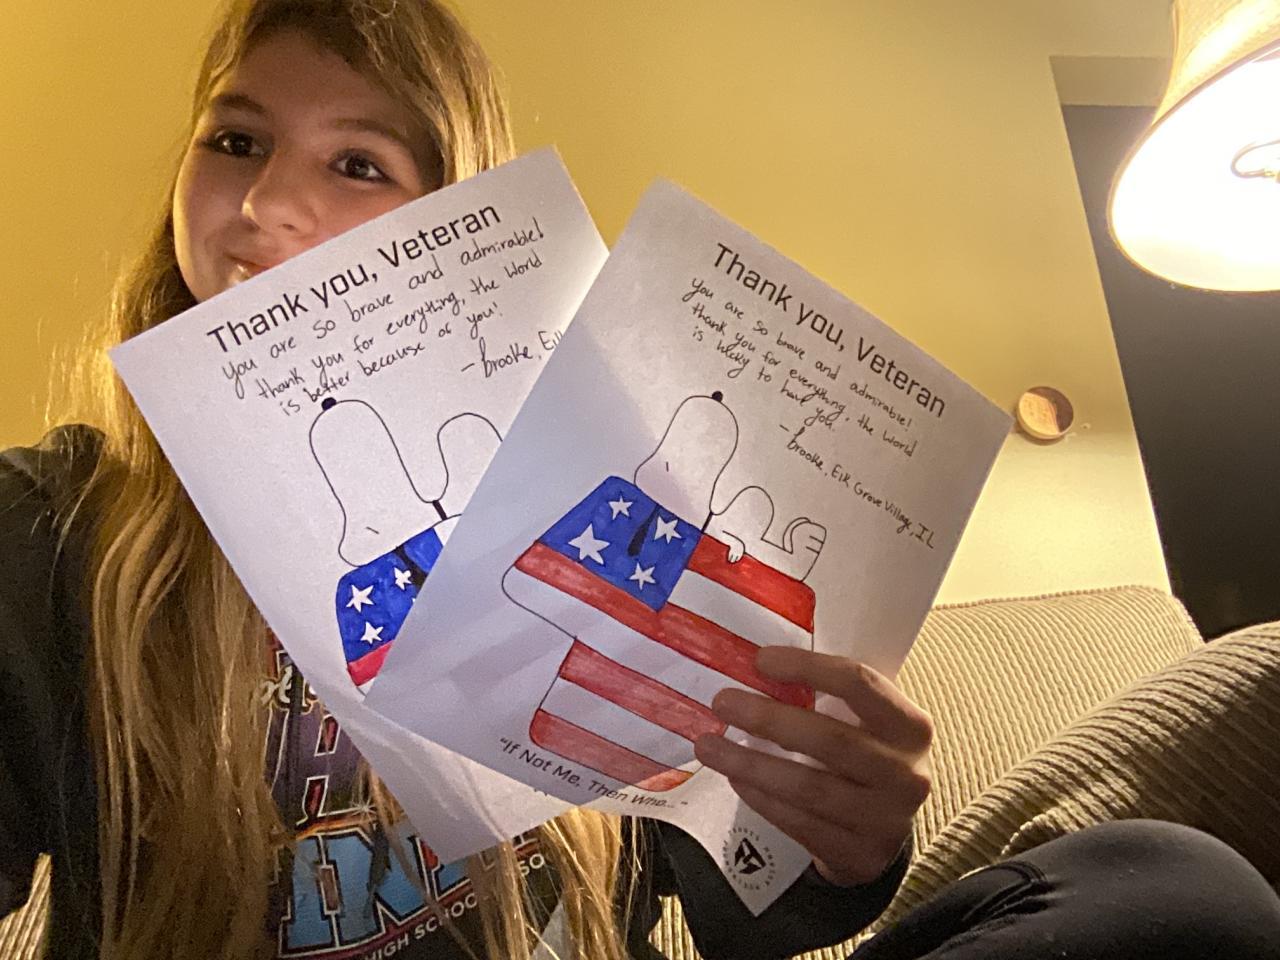 Thank you, Veteran
you are so brave and admirable!
thank you for everything, the world
is better because of you!
- Brooke, Elk
Thank you, Veteran
you are so brave and admirable!
thank you for everything, the world
is lucky to have you.
- Brooke, Elk Grove Village, IL
"If Not Me, Then Who..."
HIGH SCHOOL